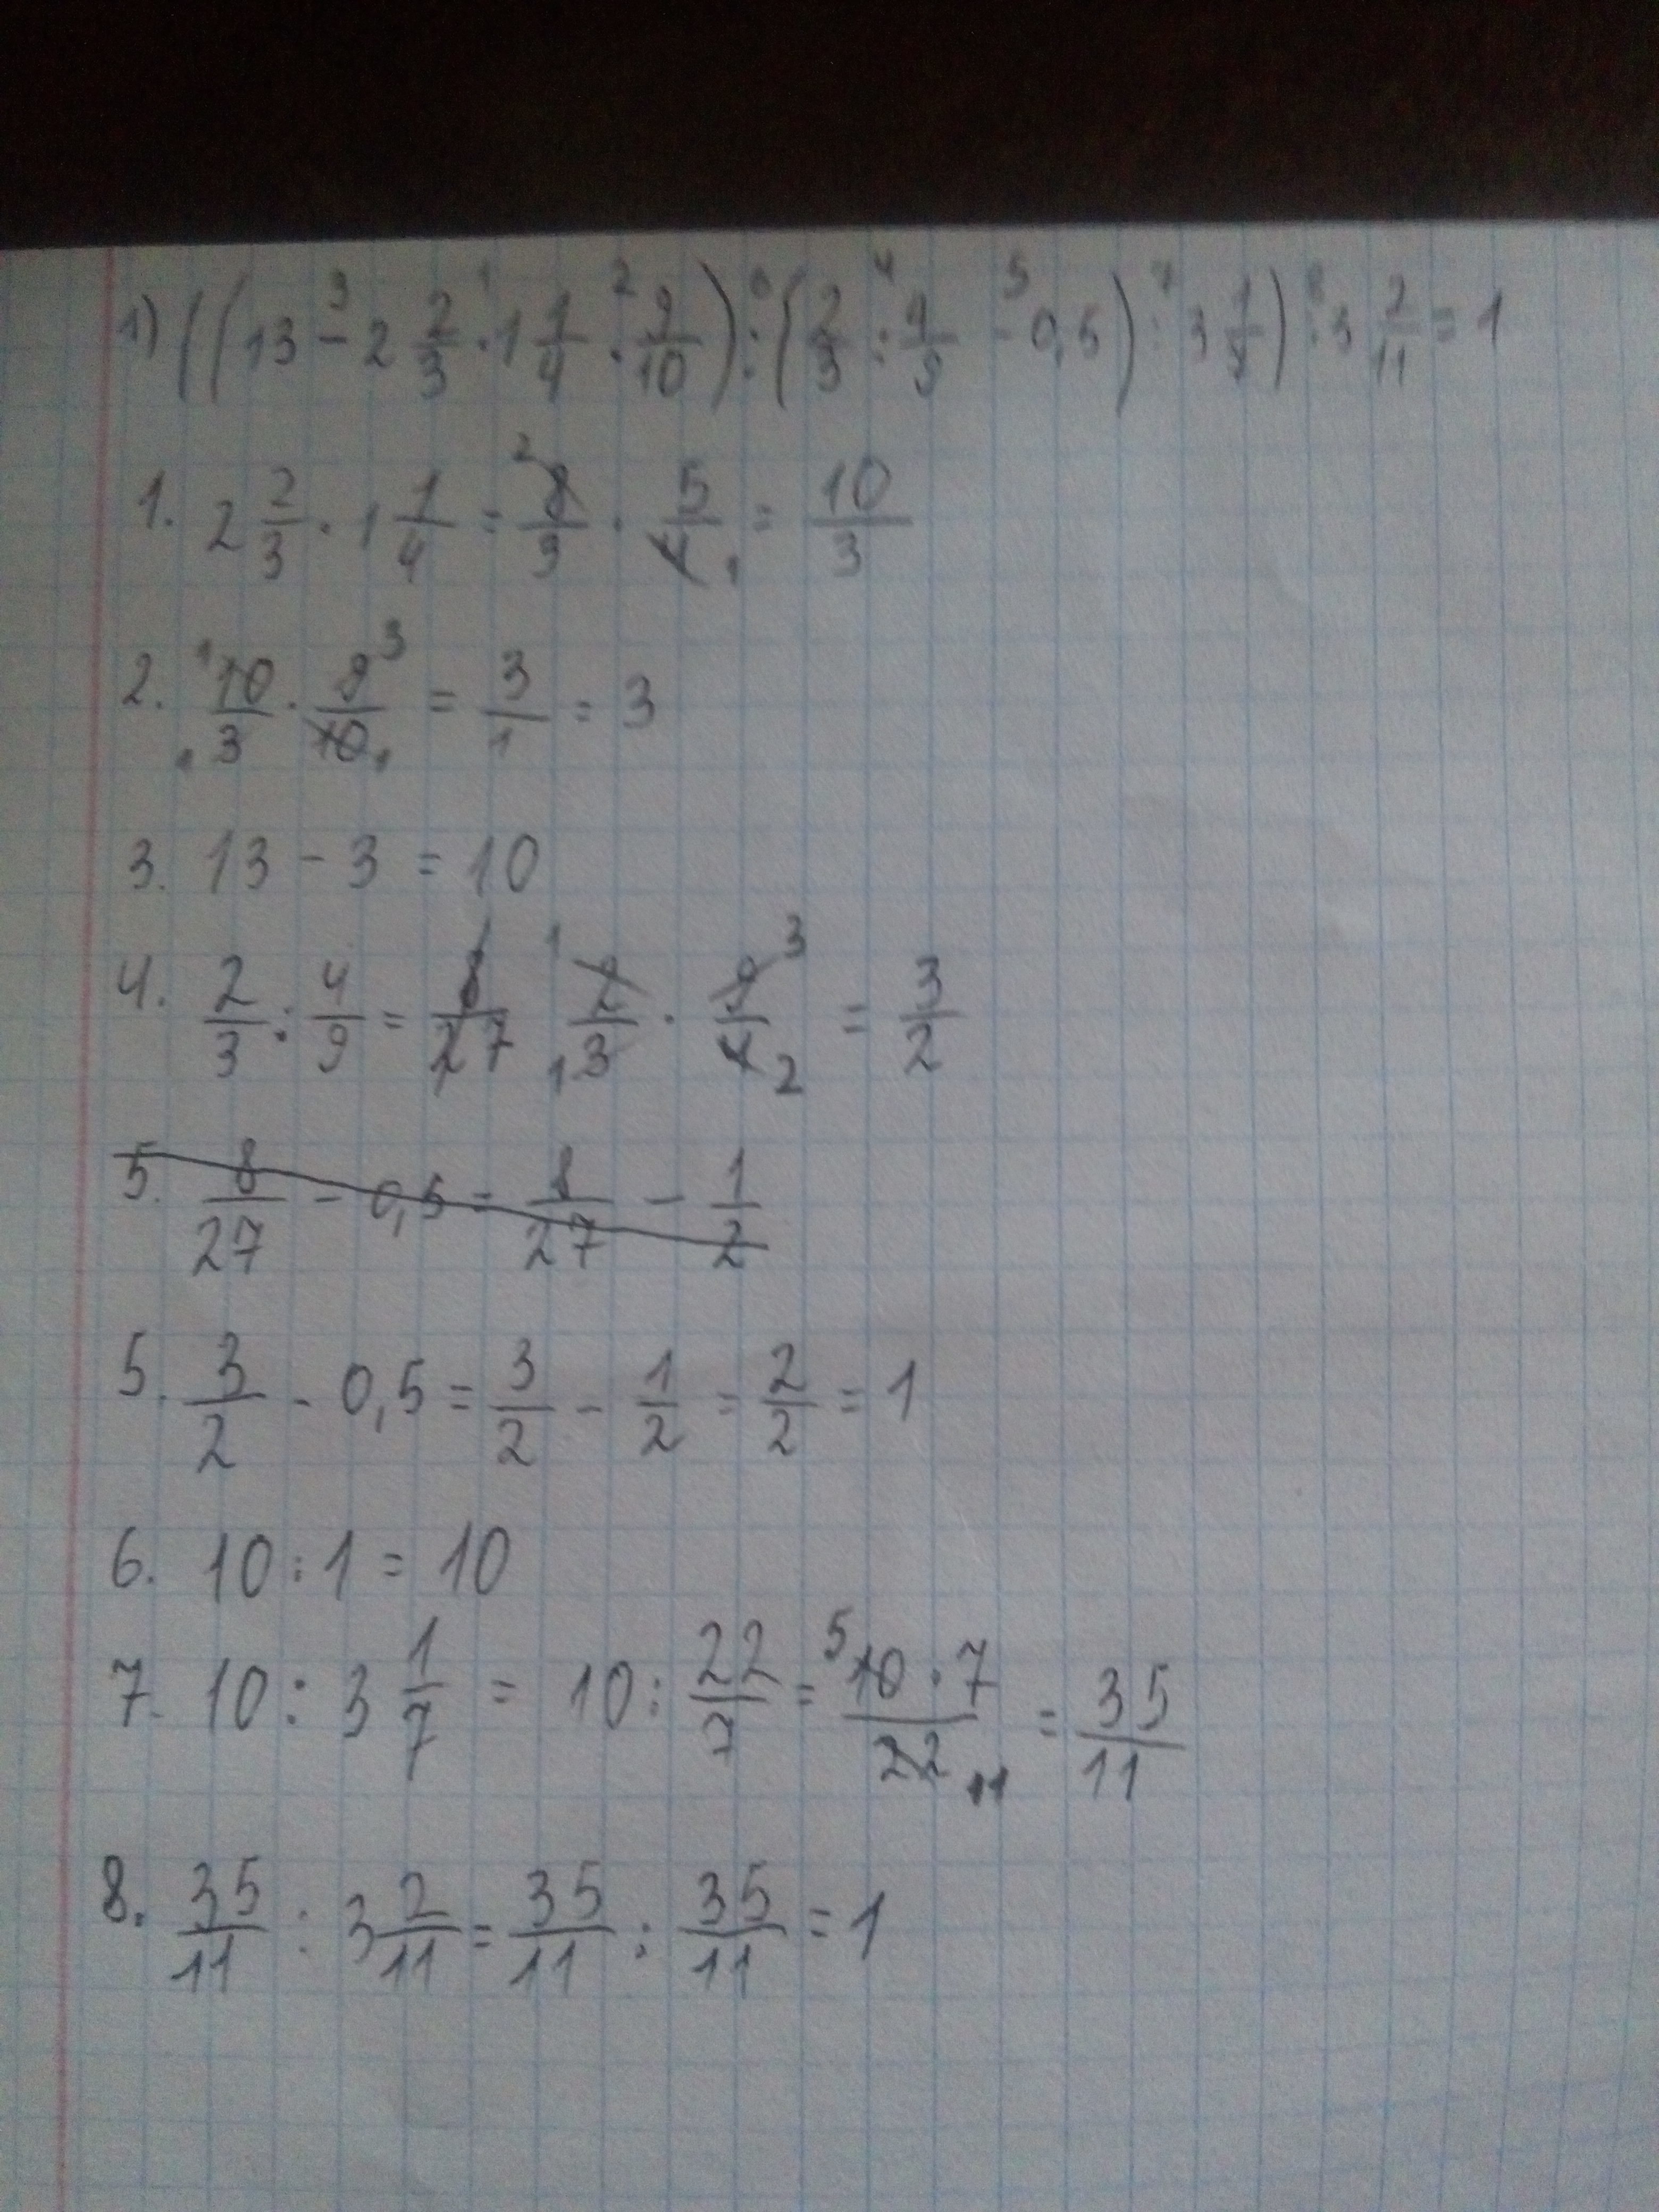 1) ((13 - 2 2/3 · 1 1/4 · 9/10) : (2/3 : 4/9 - 0,5) : 3 1/7) : 3 2/11 = 1
1. 2 2/3 · 1 1/4 = 8/3 · 5/4 = 10/3
2. 10/3 · 9/10 = 3/1 = 3
3. 13 - 3 = 10
4. 2/3 : 4/9 = 8/27 2/3 · 9/4 = 3/2
5. 8/27 - 0,5 = 8/27 - 1/2
5. 3/2 - 0,5 = 3/2 - 1/2 = 2/2 = 1
6. 10 : 1 = 10
7. 10 : 3 1/7 = 10 : 22/7 = 10 · 7/22 = 35/11
8. 35/11 : 3 2/11 = 35/11 : 35/11 = 1